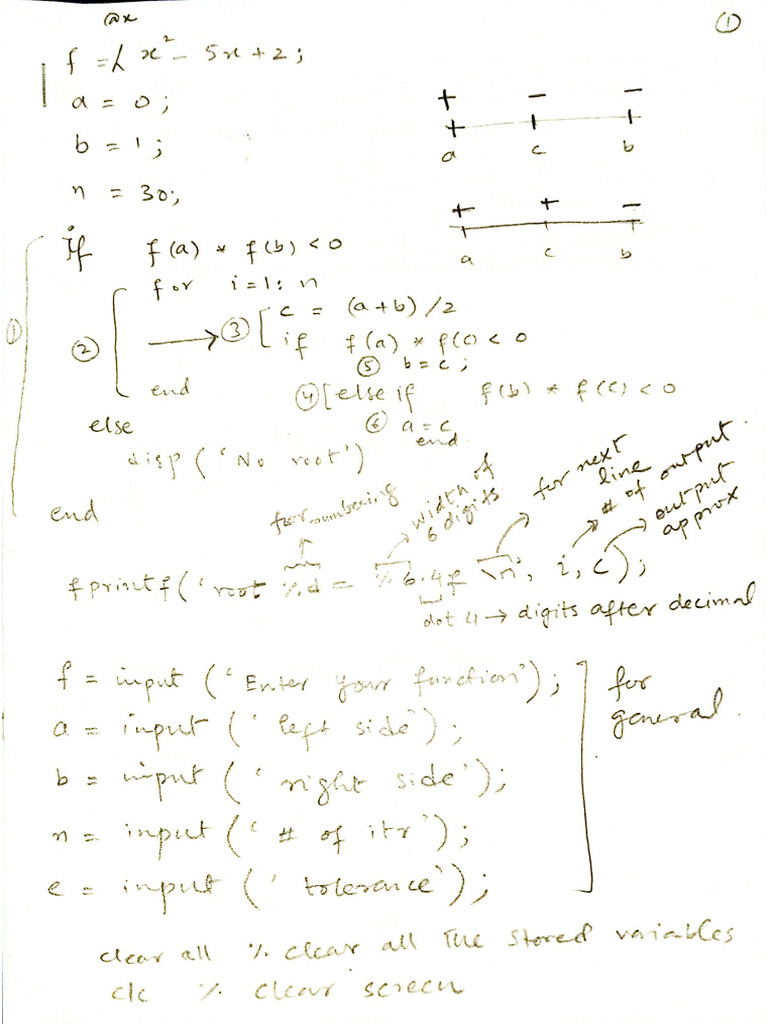 @x
①
f = x² - 5x + 2;
a = 0;
b = 1;
n = 30;
+ - -
a c b
+ + -
a c b
① if f(a) * f(b) < 0
for i=1: n
② → ③ [ c = (a+b)/2
if f(a) * f(c) < 0
⑤ b = c;
end ④ [ else if f(b) * f(c) < 0
else ⑥ a = c
end
disp ('No root')
end
for numbering
width of 6 digits
for next line
# of output
output approx
fprintf('root %d = %6.4f \n', i, c);
dot 4 → digits after decimal
f = input ('Enter your function');
a = input ('left side');
b = input ('right side');
n = input ('# of itr');
e = input ('tolerance');
for general.
clear all % clear all the stored variables
clc % clear screen